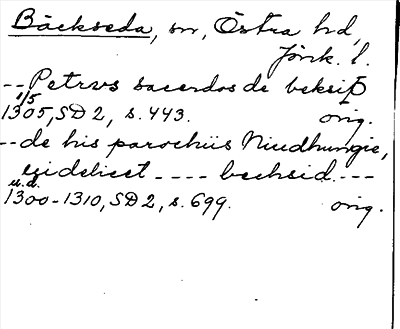 Bäckseda, sn, Östra hd,
Jönk. l.
-- Petrus sacerdos de beksiþ
1/5
1305, SD 2, s. 443. orig.
-- de his parochiis Niudhungie,
uidelicet ---- becksid ---
u.d.
1300-1310, SD 2, s. 699. orig.